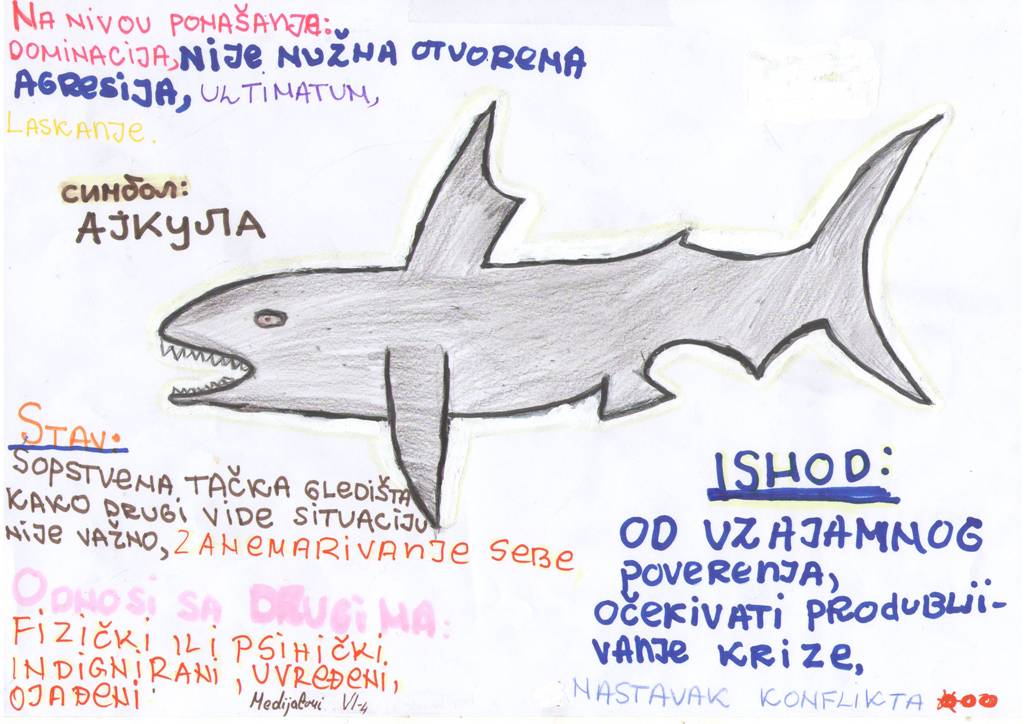 NA NIVOU PONAŠANJA:
DOMINACIJA, NIJE NUŽNA OTVORENA
AGRESIJA, ULTIMATUM,
LASKANJE.
симбол:
АЈКУЛА
STAV:
SOPSTVENA TAČKA GLEDIŠTA
KAKO DRUGI VIDE SITUACIJU
NIJE VAŽNO, ZANEMARIVANJE SEBE
ODNOSI SA DRUGIMA:
FIZIČKI ILI PSIHIČKI
INDIGNIRANI, UVREĐENI,
OJAĐENI
Medijatori VI-4
ISHOD:
OD UZAJAMNOG
POVERENJA,
OČEKIVATI PRODUBLJI-
VANJE KRIZE,
NASTAVAK KONFLIKTA